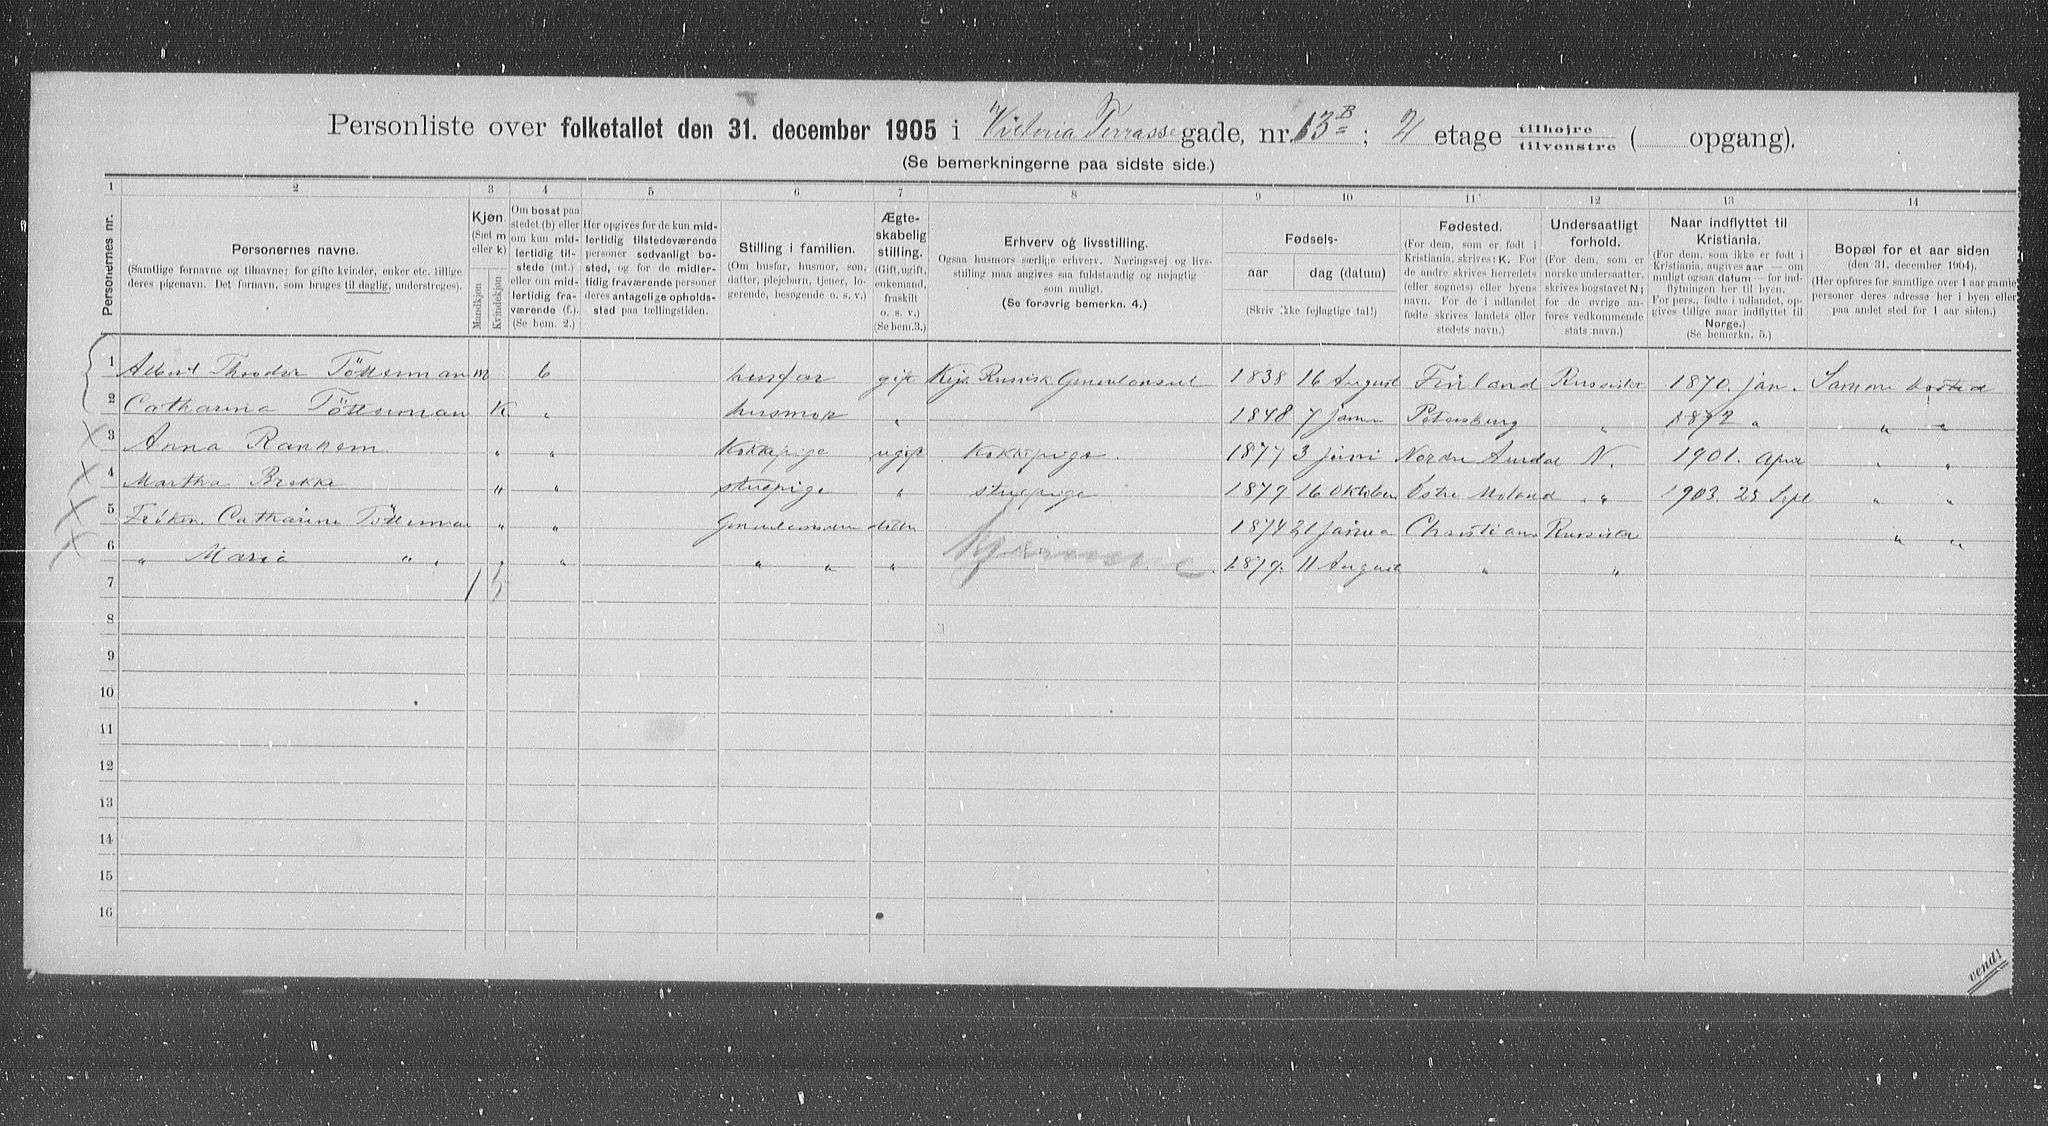 Personliste over folketallet den 31. december 1905 i Victoria Terrasse gade, nr. 13 B; 2 etage tilhøjre tilvenstre ( opgang).
(Se bemerkningerne paa sidste side.)
1 2 3 4 5 6 7 8 9 10 11 12 13 14
Personernes nr.
Personernes navne.
(Samtlige fornavne og tilnavne; for gifte kvinder, enker etc. tillige deres pigenavn. Det fornavn, som bruges til daglig, understreges).
Kjøn
(Sæt m eller k)
Mandkjøn
Kvindekjøn
Om bosat paa stedet (b) eller om kun midlertidig tilstede (mt.) eller om midlertidig fraværende (f.).
(Se bem. 2.)
Her opgives for de kun midlertidig tilstedeværende personer sedvanligt bosted, og for de midlertidig fraværende personer deres antagelige opholdssted paa tællingstiden.
Stilling i familien.
(Om husfar, husmor, søn, datter, plejebarn, tjener, logerende, besøgende o. s. v.)
Ægteskabelig stilling.
(Gift, ugift, enkemand, fraskilt o. s. v.)
(Se bem. 3.)
Erhverv og livsstilling.
Ogsaa husmors særlige erhverv. Næringsvej og livsstilling maa angives saa fuldstændig og nøjagtig som muligt.
(Se forøvrig bemerkn. 4.)
Fødsels-
aar dag (datum)
(Skriv ikke fejlagtige tal!)
Fødested.
(For dem, som er født i Kristiania, skrives: K. For de andre skrives herredets (eller sognets) eller byens navn. For de i udlandet fødte skrives landets eller stedets navn.)
Undersaatligt forhold.
(For dem, som er norske undersaatter, skrives bogstavet N; for de øvrige anføres vedkommende stats navn.)
Naar indflyttet til Kristiania.
(For dem, som ikke er født i Kristiania, angives aar — om muligt ogsaa datum — for indflytningen her til byen. For pers., fødte i udlandet, opgives tillige naar indflyttet til Norge.)
(Se bemerkn. 5.)
Bopæl for et aar siden
(den 31. december 1904).
(Her opføres for samtlige over 1 aar gamle personer deres adresse her i byen eller paa andet sted for 1 aar siden.)
1 Albert Theodor Tötterman m b husfar gift Kejs. Russisk Generalconsul 1838 16 August Finland Russisk 1870. jan. Samme bosted
2 Catharina Tötterman K " husmor " 1848 7 janu Petersburg " 1872 " " "
3 Anna Ranhem " " Kokkepige ugift Kokkepige 1877 3 juni Nordre Aurdal N. 1901. April " "
4 Martha Brekke " " stuepige " stuepige 1879 16 Oktober Østre Moland " 1903. 25 Sept " "
5 Frøken Catharina Tötterman " " ditto 1874 21 janua Christiania Russisk " "
6 " Maria " " " " " " hjemme. 1879. 11 August " "
7 1 5
8
9
10
11
12
13
14
15
16
vend!